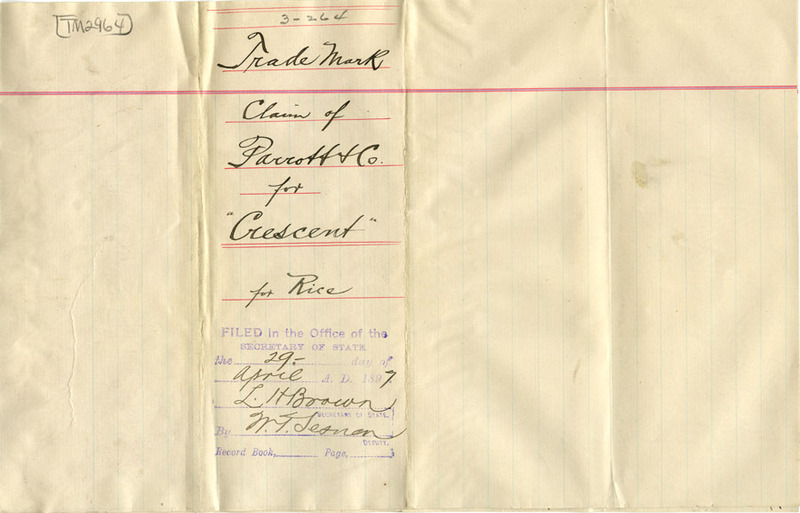 TM2964
3-264
Trade Mark
Claim of
Parrott & Co.
for
"Crescent"
for Rice
FILED in the Office of the
SECRETARY OF STATE
the 29- day of
April A. D. 1897
L. H. Brown
SECRETARY OF STATE.
By W. T. Sesnon
DEPUTY.
Record Book, Page,